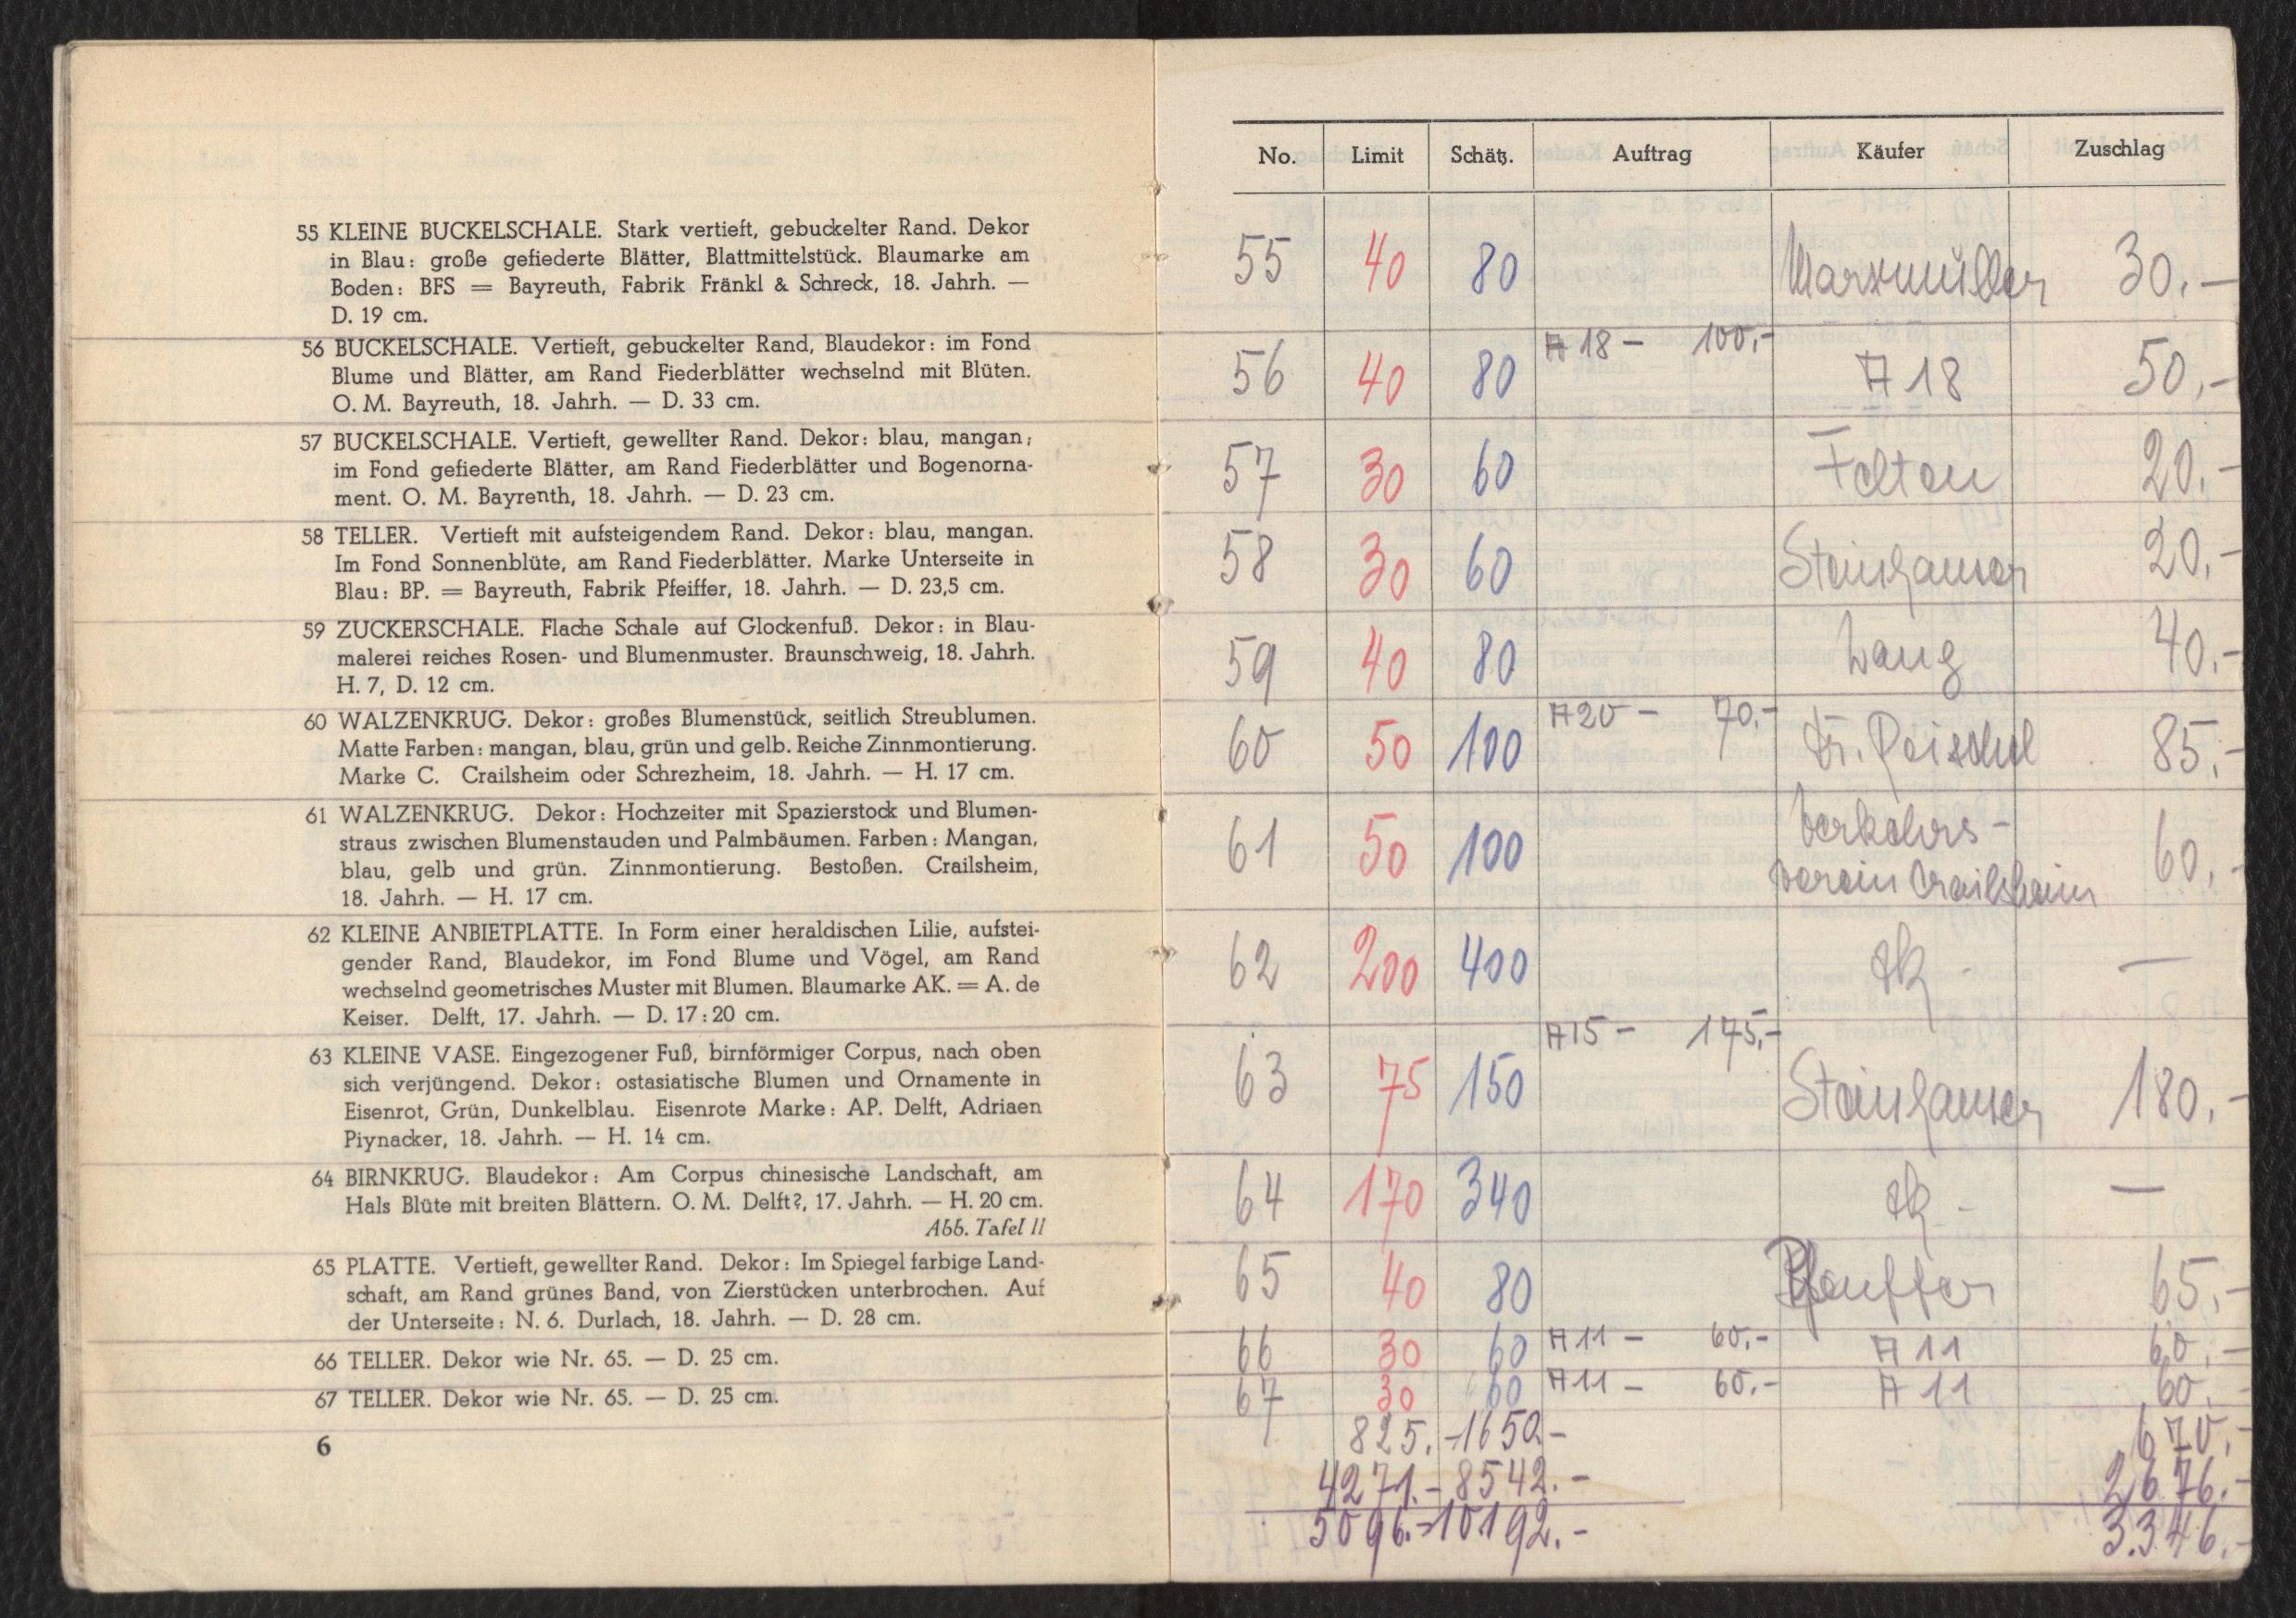 55 KLEINE BUCKELSCHALE. Stark vertieft, gebuckelter Rand. Dekor
in Blau: große gefiederte Blätter, Blattmittelstück. Blaumarke am
Boden: BFS = Bayreuth, Fabrik Fränkl & Schreck, 18. Jahrh. —
D. 19 cm.
56 BUCKELSCHALE. Vertieft, gebuckelter Rand, Blaudekor: im Fond
Blume und Blätter, am Rand Fiederblätter wechselnd mit Blüten.
O. M. Bayreuth, 18. Jahrh. — D. 33 cm.
57 BUCKELSCHALE. Vertieft, gewellter Rand. Dekor: blau, mangan;
im Fond gefiederte Blätter, am Rand Fiederblätter und Bogenorna-
ment. O. M. Bayrenth, 18. Jahrh. — D. 23 cm.
58 TELLER. Vertieft mit aufsteigendem Rand. Dekor: blau, mangan.
Im Fond Sonnenblüte, am Rand Fiederblätter. Marke Unterseite in
Blau: BP. = Bayreuth, Fabrik Pfeiffer, 18. Jahrh. — D. 23,5 cm.
59 ZUCKERSCHALE. Flache Schale auf Glockenfuß. Dekor: in Blau-
malerei reiches Rosen- und Blumenmuster. Braunschweig, 18. Jahrh.
H. 7, D. 12 cm.
60 WALZENKRUG. Dekor: großes Blumenstück, seitlich Streublumen.
Matte Farben: mangan, blau, grün und gelb. Reiche Zinnmontierung.
Marke C. Crailsheim oder Schrezheim, 18. Jahrh. — H. 17 cm.
61 WALZENKRUG. Dekor: Hochzeiter mit Spazierstock und Blumen-
straus zwischen Blumenstauden und Palmbäumen. Farben: Mangan,
blau, gelb und grün. Zinnmontierung. Bestoßen. Crailsheim,
18. Jahrh. — H. 17 cm.
62 KLEINE ANBIETPLATTE. In Form einer heraldischen Lilie, aufstei-
gender Rand, Blaudekor, im Fond Blume und Vögel, am Rand
wechselnd geometrisches Muster mit Blumen. Blaumarke AK. = A. de
Keiser. Delft, 17. Jahrh. — D. 17:20 cm.
63 KLEINE VASE. Eingezogener Fuß, birnförmiger Corpus, nach oben
sich verjüngend. Dekor: ostasiatische Blumen und Ornamente in
Eisenrot, Grün, Dunkelblau. Eisenrote Marke: AP. Delft, Adriaen
Piynacker, 18. Jahrh. — H. 14 cm.
64 BIRNKRUG. Blaudekor: Am Corpus chinesische Landschaft, am
Hals Blüte mit breiten Blättern. O. M. Delft?, 17. Jahrh. — H. 20 cm.
Abb. Tafel II
65 PLATTE. Vertieft, gewellter Rand. Dekor: Im Spiegel farbige Land-
schaft, am Rand grünes Band, von Zierstücken unterbrochen. Auf
der Unterseite: N. 6. Durlach, 18. Jahrh. — D. 28 cm.
66 TELLER. Dekor wie Nr. 65. — D. 25 cm.
67 TELLER. Dekor wie Nr. 65. — D. 25 cm.
6
No. Limit Schätz. Auftrag Käufer Zuschlag
55 40 80 Marxmüller 30.—
56 40 80 A 18 — 100.- A 18 50.-
57 30 60 Felten 20.-
58 30 60 Steinhauser 20.-
59 40 80 Lang 40.-
60 50 100 A 20 — 70.- Dr. 85.-
61 50 100 Verkehrs-
verein Crailsheim 60.-
62 200 400 —
63 75 150 A 15 — 175.- Steinhauser 180.-
64 170 340 —
65 40 80 65.-
66 30 60 A 11 — 60.- A 11 60.-
67 30 60 A 11 — 60.- A 11 60.-
825.- 1650.- 670.-
4271.- 8542.- 2676.-
5096.- 10192.- 3.346.-